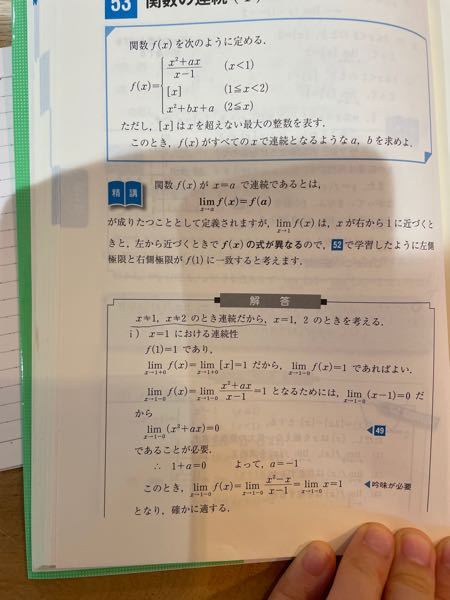 53 関数の連続
関数 f(x) を次のように定める.
f(x)={ (x²+ax)/(x−1) (x<1)
[x] (1≦x<2)
x²+bx+a (2≦x)
ただし, [x] は x を超えない最大の整数を表す.
このとき, f(x) がすべての x で連続となるような a, b を求めよ.
精講
関数 f(x) が x=a で連続であるとは,
lim_{x→a} f(x)=f(a)
が成りたつこととして定義されますが, lim_{x→1} f(x) は, x が右から 1 に近づくと
きと, 左から近づくときで f(x) の式が異なるので, 52 で学習したように左側
極限と右側極限が f(1) に一致すると考えます.
解答
x≠1, x≠2 のとき連続だから, x=1, 2 のときを考える.
i) x=1 における連続性
f(1)=1 であり,
lim_{x→1+0} f(x)=lim_{x→1+0} [x]=1 だから, lim_{x→1−0} f(x)=1 であればよい.
lim_{x→1−0} f(x)=lim_{x→1−0} (x²+ax)/(x−1)=1 となるためには, lim_{x→1−0} (x−1)=0 だ
から
lim_{x→1−0} (x²+ax)=0 ◀49
であることが必要.
∴ 1+a=0 よって, a=−1
このとき, lim_{x→1−0} f(x)=lim_{x→1−0} (x²−x)/(x−1)=lim_{x→1−0} x=1 ◀吟味が必要
となり, 確かに適する.